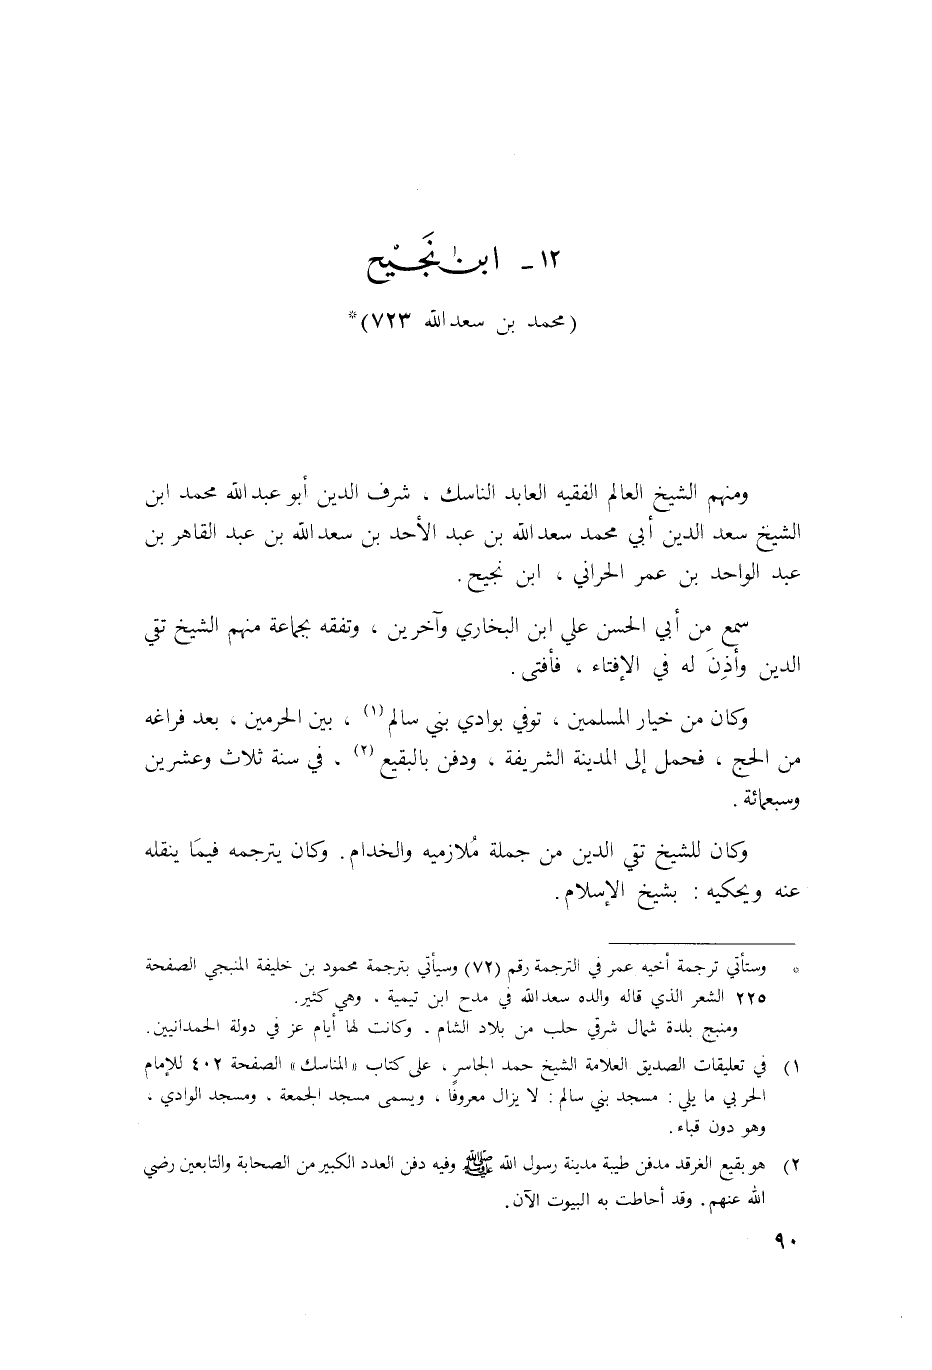 ١٢ - ابن نَجِيح
(محمد بن سعدالله ٧٢٣)*
ومنهم الشيخ العالم الفقيه العابد الناسك ، شرف الدين أبو عبدالله محمد ابن
الشيخ سعد الدين أبي محمد سعدالله بن عبد الأحد بن سعدالله بن عبد القاهر بن
عبد الواحد بن عمر الحراني ، ابن نجيح .
سمع من أبي الحسن علي ابن البخاري وآخرين ، وتفقه بجماعة منهم الشيخ تقي
الدين وأذِنَ له في الإفتاء ، فأفتى .
وكان من خيار المسلمين ، توفي بوادي بني سالم (١) ، بين الحرمين ، بعد فراغه
من الحج ، فحمل إلى المدينة الشريفة ، ودفن بالبقيع (٢) . في سنة ثلاث وعشرين
وسبعمائة .
وكان للشيخ تقي الدين من جملة مُلازميه والخدام . وكان يترجمه فيمَا ينقله
عنه ويحكيه : بشيخ الإسلام .
* وستأتي ترجمة أخيه عمر في الترجمة رقم (٧٢) وسيأتي بترجمة محمود بن خليفة المنبجي الصفحة
٢٢٥ الشعر الذي قاله والده سعدالله في مدح ابن تيمية ، وهي كثير .
ومنبج بلدة شمال شرقي حلب من بلاد الشام . وكانت لها أيام عز في دولة الحمدانيين .
١) في تعليقات الصديق العلامة الشيخ حمد الجاسر ، على كتاب «المناسك» الصفحة ٤٠٢ للإمام
الحربي ما يلي : مسجد بني سالم : لا يزال معروفًا ، ويسمى مسجد الجمعة ، ومسجد الوادي ،
وهو دون قباء .
٢) هو بقيع الغرقد مدفن طيبة مدينة رسول الله ﷺ وفيه دفن العدد الكبير من الصحابة والتابعين رضي
الله عنهم . وقد أحاطت به البيوت الآن .
٩٠